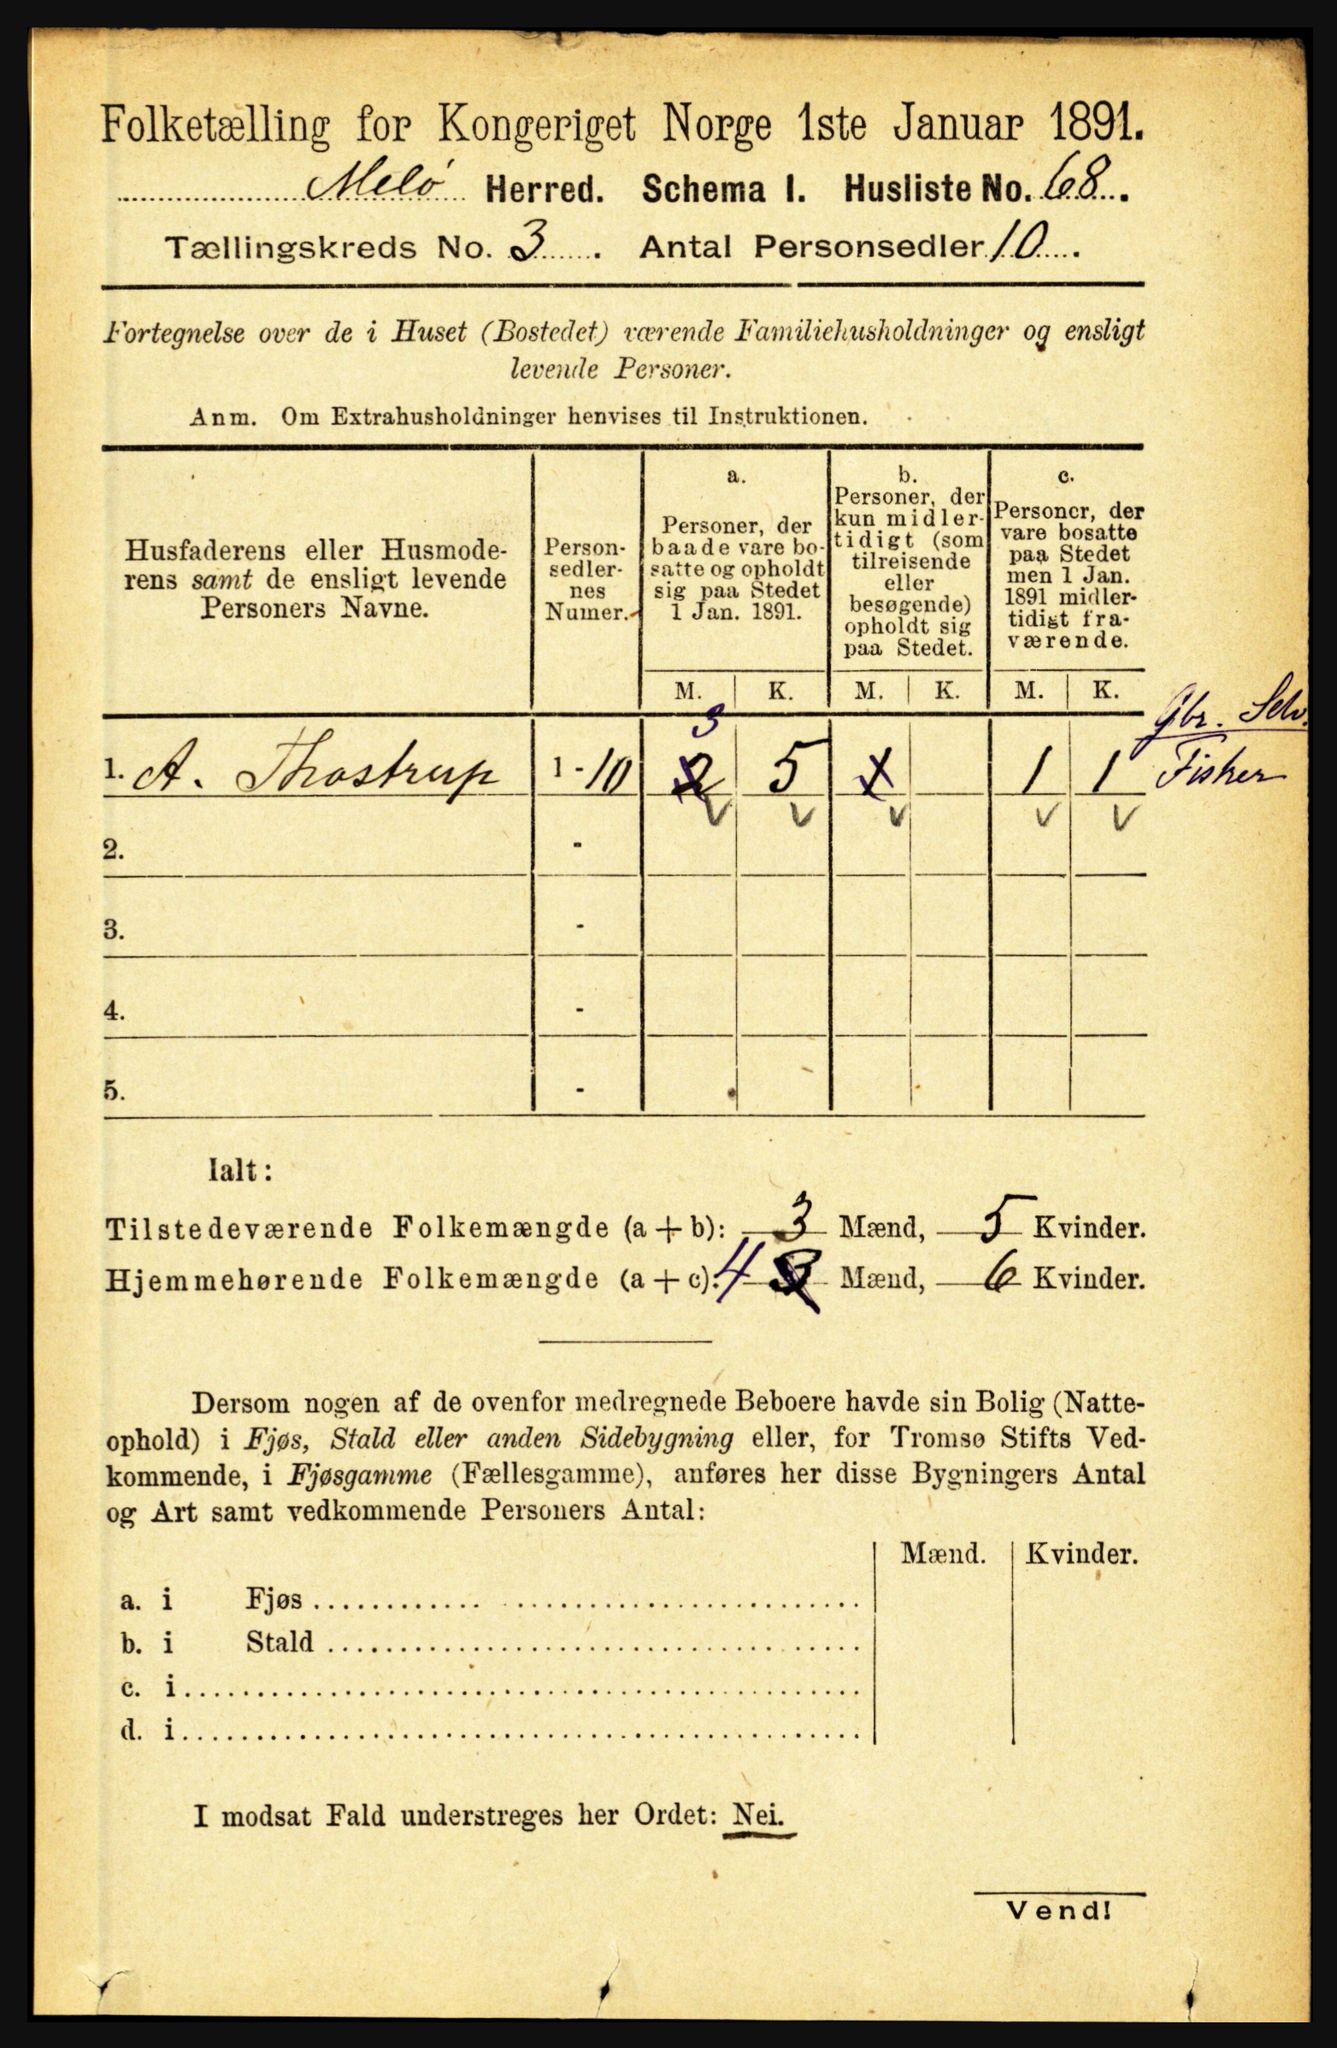 Folketælling for Kongeriget Norge 1ste Januar 1891.
Melö Herred. Schema I. Husliste No. 68.
Tællingskreds No. 3. Antal Personsedler 10.
Fortegnelse over de i Huset (Bostedet) værende Familiehusholdninger og ensligt
levende Personer.
Anm. Om Extrahusholdninger henvises til Instruktionen.
Husfaderens eller Husmode-
rens samt de ensligt levende
Personers Navne.
Person-
sedler-
nes
Numer.
a.
Personer, der
baade vare bo-
satte og opholdt
sig paa Stedet
1 Jan. 1891.
b.
Personer, der
kun midler-
tidigt (som
tilreisende
eller
besøgende)
opholdt sig
paa Stedet.
c.
Personer, der
vare bosatte
paa Stedet
men 1 Jan.
1891 midler-
tidigt fra-
værende.
M. K. M. K. M. K.
Gbr. Selv.
3
1. A. Thostrup 1 - 10 2 5 1 1 1 Fisker
2. -
3. -
4. -
5. -
Ialt:
Tilstedeværende Folkemængde (a + b): 3 Mænd, 5 Kvinder.
Hjemmehørende Folkemængde (a + c): 4 3 Mænd, 6 Kvinder.
Dersom nogen af de ovenfor medregnede Beboere havde sin Bolig (Natte-
ophold) i Fjøs, Stald eller anden Sidebygning eller, for Tromsø Stifts Ved-
kommende, i Fjøsgamme (Fællesgamme), anføres her disse Bygningers Antal
og Art samt vedkommende Personers Antal:
Mænd. Kvinder.
a. i Fjøs
b. i Stald
c. i
d. i
I modsat Fald understreges her Ordet: Nei.
Vend!